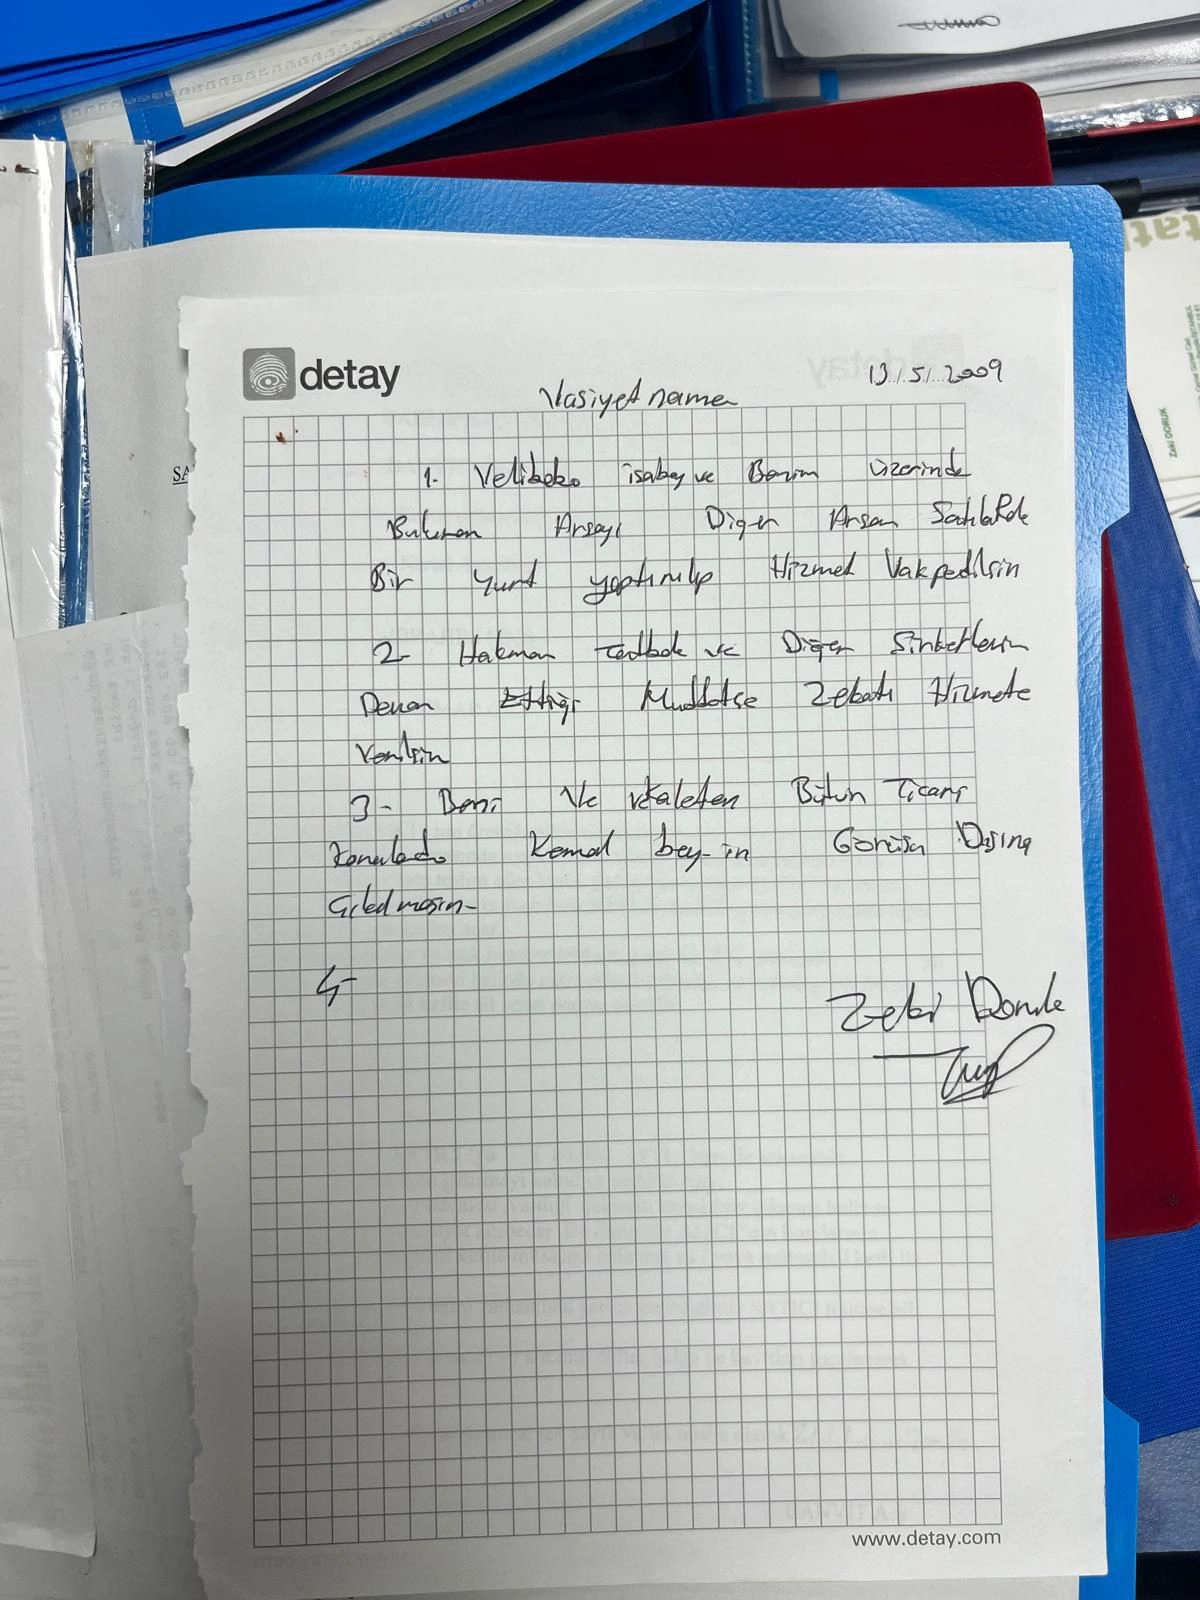 detay
13/5/2009
Vasiyet name
1- Velibaba isabey ve Benim üzerinde
Bulunan Arsayı Diğer Arsan Satılıp
Bir Yurt yaptırılıp Hizmet Vakfedilsin
2- Hakman ve Diğer Şirketlerin
Devam Ettiği Müddetçe Zekatı Hizmete
Verilsin
3- Beni Ve vekaleten Bütün Ticari
Konularda Kemal bey-in Görüşü Dışına
Çıkılmasın-
4-
Zeki Doruk
www.detay.com
Zeki DORUK
SA